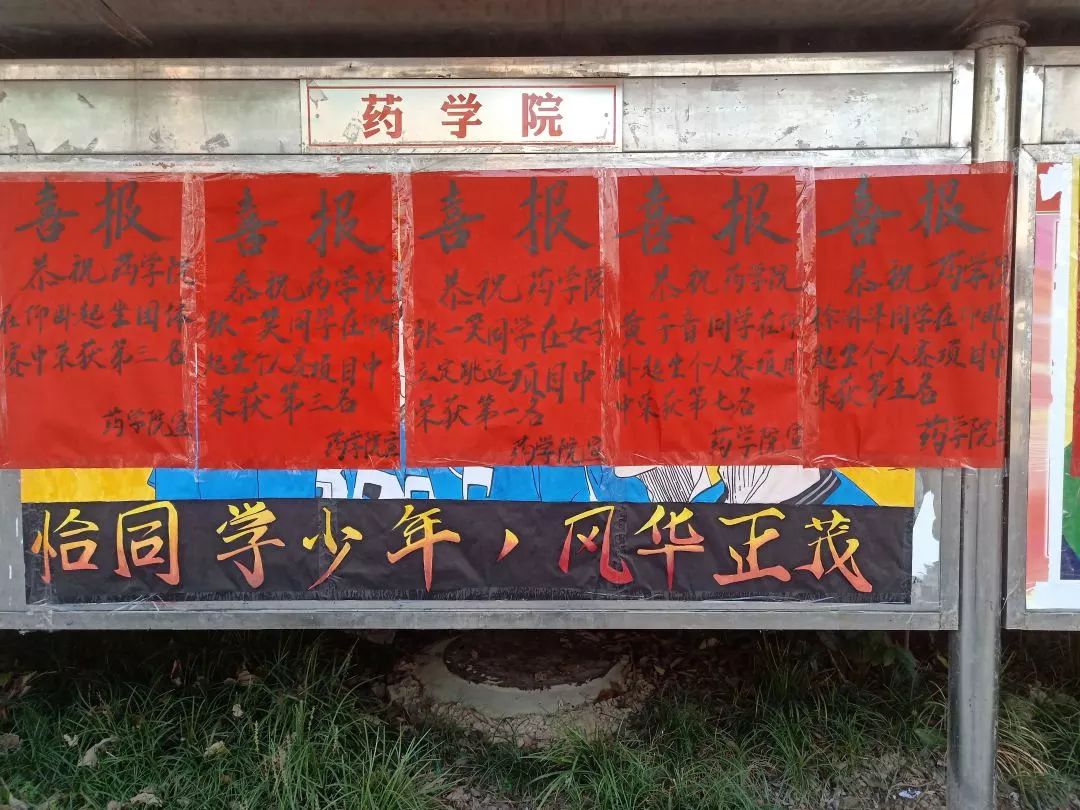 药学院
喜报
恭祝药学院
在仰卧起坐团体
赛中荣获第三名
药学院宣
喜报
恭祝药学院
张一笑同学在仰卧
起坐个人赛项目中
荣获第三名
药学院宣
喜报
恭祝药学院
张一笑同学在女子
立定跳远项目中
荣获第一名
药学院宣
喜报
恭祝药学院
黄子音同学在仰
卧起坐个人赛项目
中荣获第七名
药学院宣
喜报
恭祝药学院
同学在仰卧
起坐个人赛项目中
荣获第五名
药学院宣
恰同学少年，风华正茂